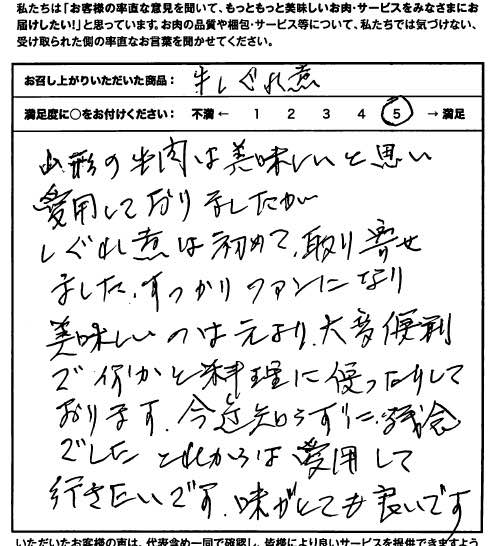 私たちは「お客様の率直な意見を聞いて、もっともっと美味しいお肉・サービスをみなさまにお
届けしたい!」と思っています。お肉の品質や梱包・サービス等について、私たちでは気づけない、
受け取られた側の率直なお言葉を聞かせてください。
お召し上がりいただいた商品: 牛しぐれ煮
満足度に○をお付けください: 不満 ← 1 2 3 4 5 → 満足
山形の牛肉は美味しいと思い
愛用しておりましたが
しぐれ煮は初めて、取り寄せ
ました、すっかりファンになり
美味しいのは元より、大変便利
で何かと料理に使ったりして
おります。今迄知らずに、残念
でした これからは愛用して
行きたいです。味がとても良いです
いただいたお客様の声は、代表含め一同で確認し、皆様により良いサービスを提供できますよう